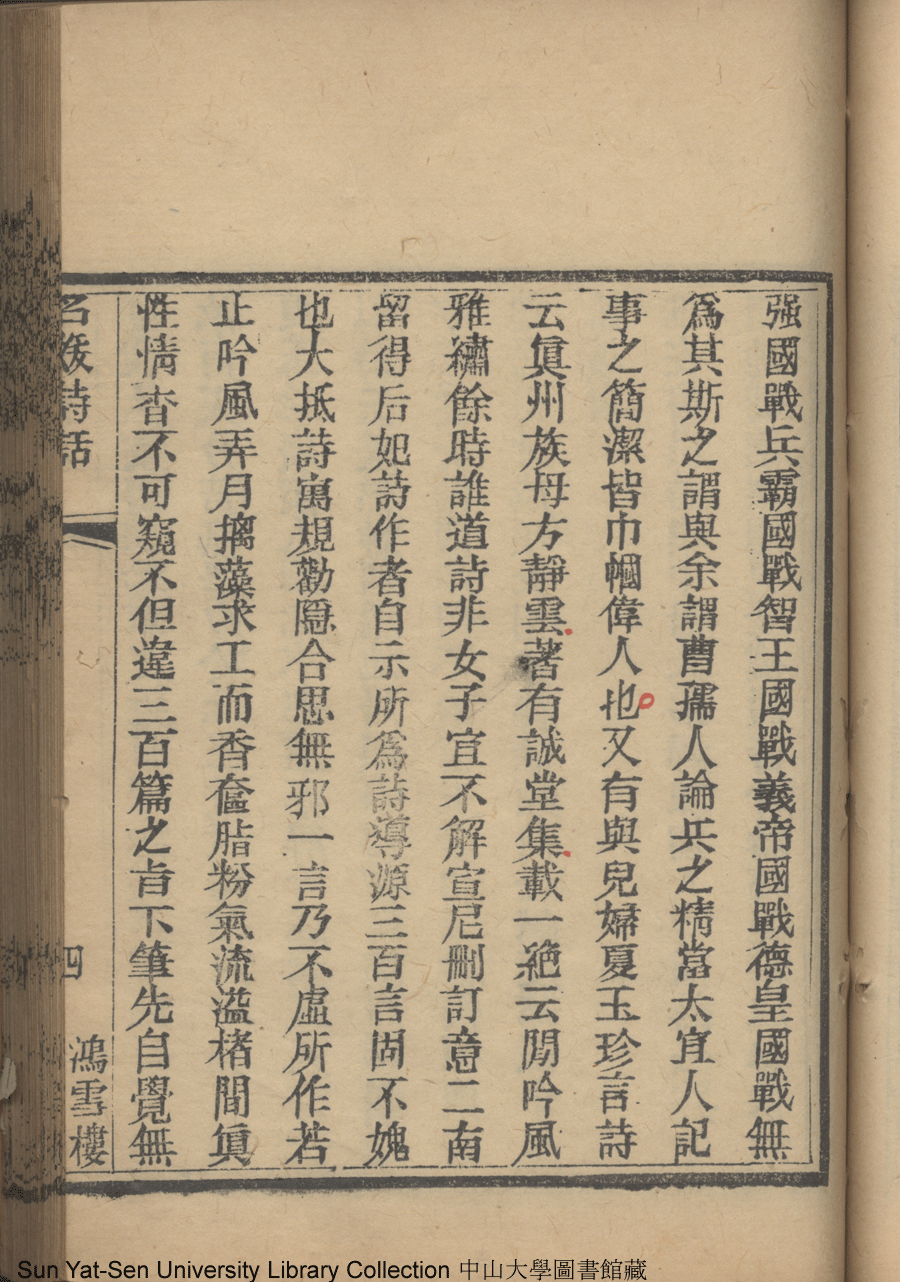 强國戰兵霸國戰智王國戰義帝國戰德皇國戰無
爲其斯之謂與余謂曹孺人論兵之精當太宜人記
事之簡潔皆巾幗偉人也又有與兒婦夏玉珍言詩
云眞州族母方靜雲著有誠堂集載一絶云閒吟風
雅繡餘時誰道詩非女子宜不解宣尼刪訂意二南
留得后妃詩作者自示所爲詩導源三百言固不媿
也大抵詩寓規勸隱合思無邪一言乃不虛所作若
止吟風弄月摛藻求工而香奩脂粉氣流溢楮間眞
性情杳不可窺不但違三百篇之旨下筆先自覺無
名媛詩話
四
鴻雪樓
Sun Yat-Sen University Library Collection 中山大學圖書館藏